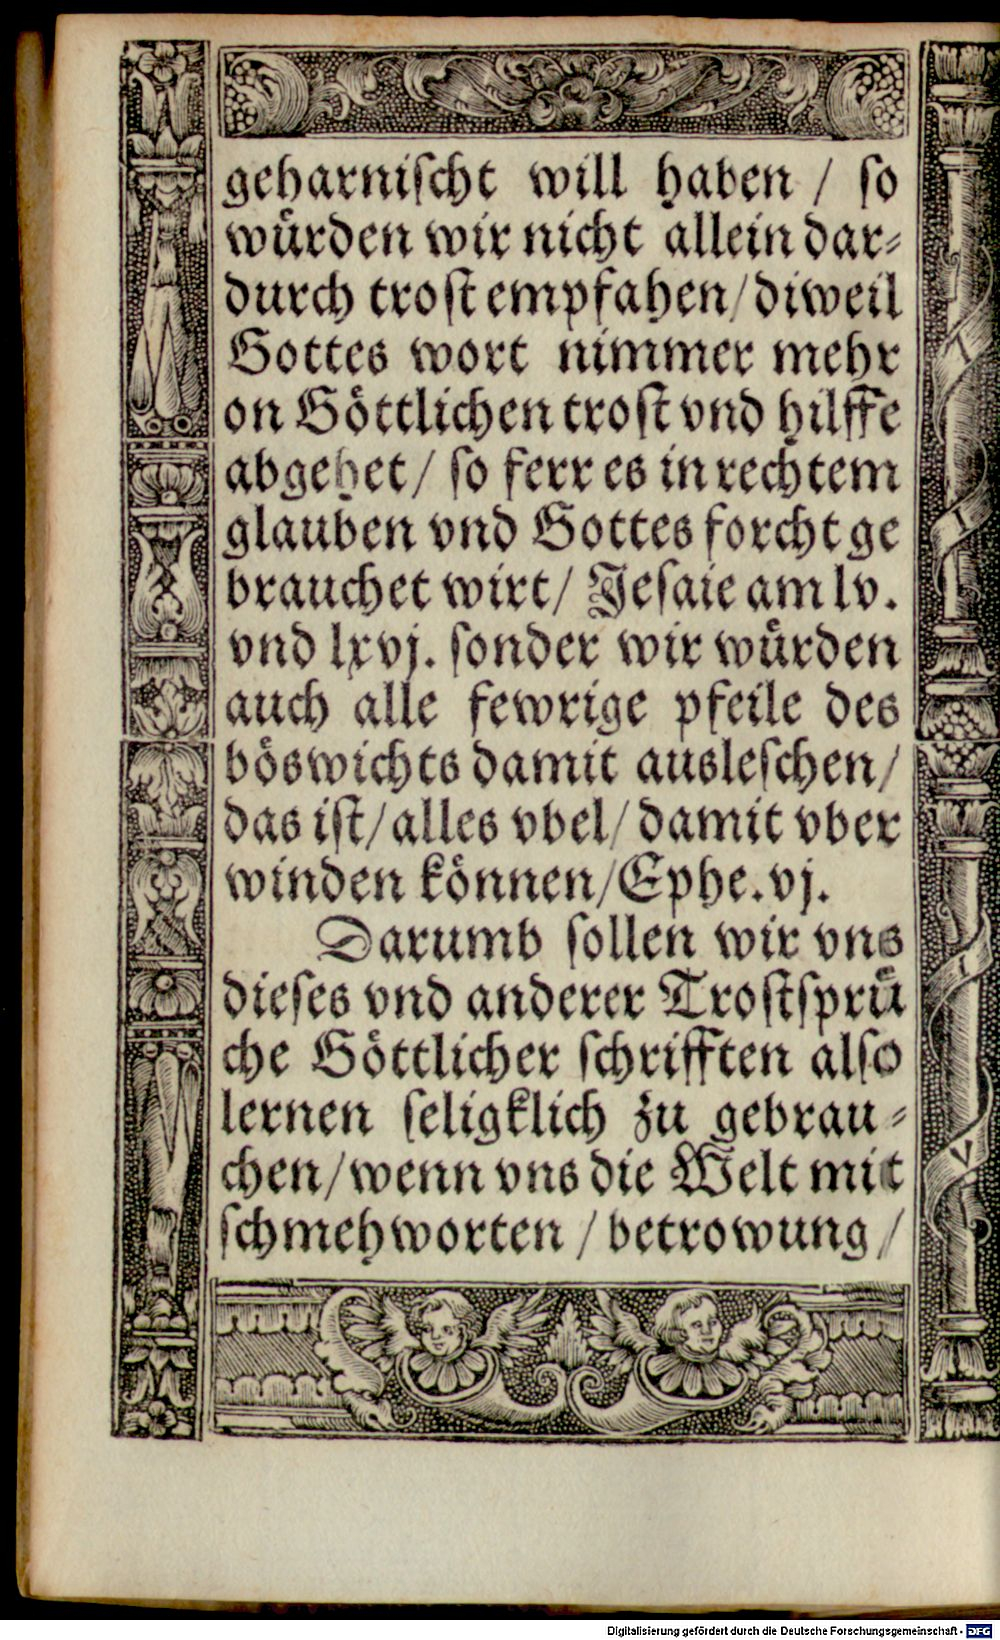 geharnischt will haben / so
würden wir nicht allein dar⸗
durch trost empfahen/ diweil
Gottes wort nimmer mehr
on Göttlichen trost vnd hilffe
abgehet/ so ferr es in rechtem
glauben vnd Gottes forcht ge
brauchet wirt/ Jesaie am lv.
vnd lxvj. sonder wir würden
auch alle fewrige pfeile des
böswichts damit ausleschen/
das ist/ alles vbel/ damit vber
winden können/ Ephe. vj.
Darumb sollen wir vns
dieses vnd anderer Trostsprü
che Göttlicher schrifften also
lernen seligklich zu gebrau⸗
chen/ wenn vns die Welt mit
schmehworten / betrowung /
Digitalisierung gefördert durch die Deutsche Forschungsgemeinschaft - DFG